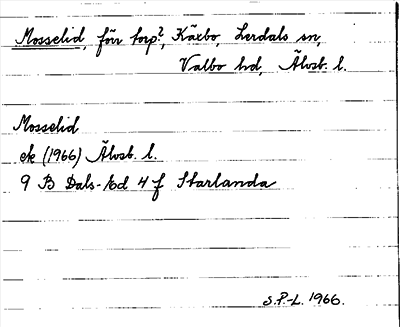 Mosselid, förr torp?, Käxbo, Lerdals sn,
Valbo hd, Älvsb. l.
Mosselid
ek (1966) Älvsb. l.
9 B Dals-Ed 4 f Starlanda
S.P-L. 1966.